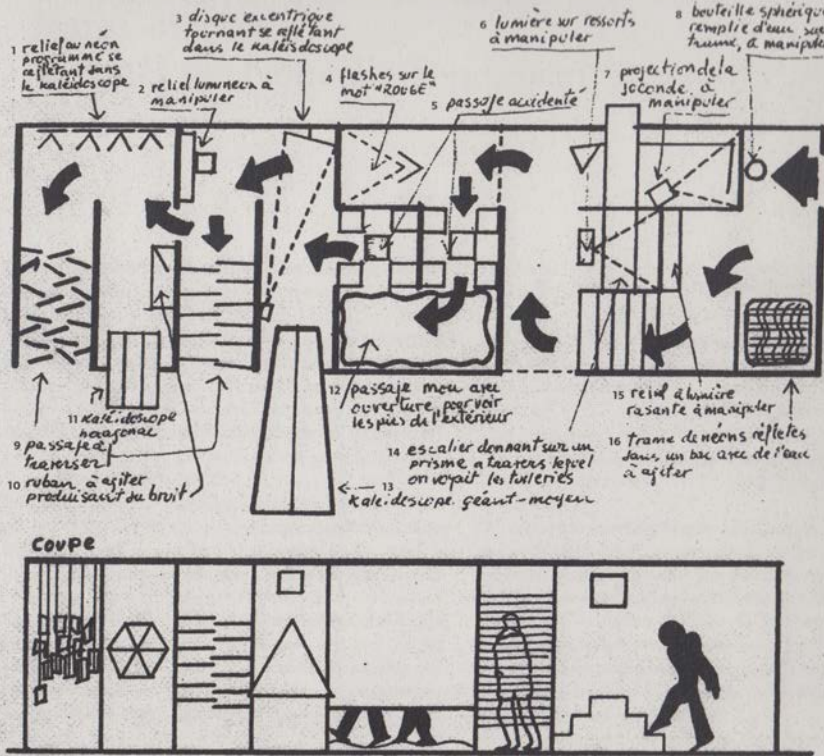 1 relief au néon
programmé se
reflétant dans
le kaléidoscope
2 relief lumineux à
manipuler
3 disque excentrique
tournant se reflétant
dans le kaléidoscope
4 flashes sur le
mot "ROUGE"
5 passage accidenté
6 lumière sur ressorts
à manipuler
7 projection de la
joconde à
manipuler
8 bouteille sphérique
remplie d'eau sur
trame, à manipuler
9 passage à
traverser
10 ruban à agiter
produisant du bruit
11 kaléidoscope
hexagonal
12 passage mou avec
ouverture pour voir
les pieds de l'extérieur
13
kaléidoscope géant-moyen
14 escalier donnant sur un
prisme à travers lequel
on voyait les tuileries
15 relief à lumière
rasante à manipuler
16 trame de néons réflétés
dans un bac avec de l'eau
à agiter
COUPE